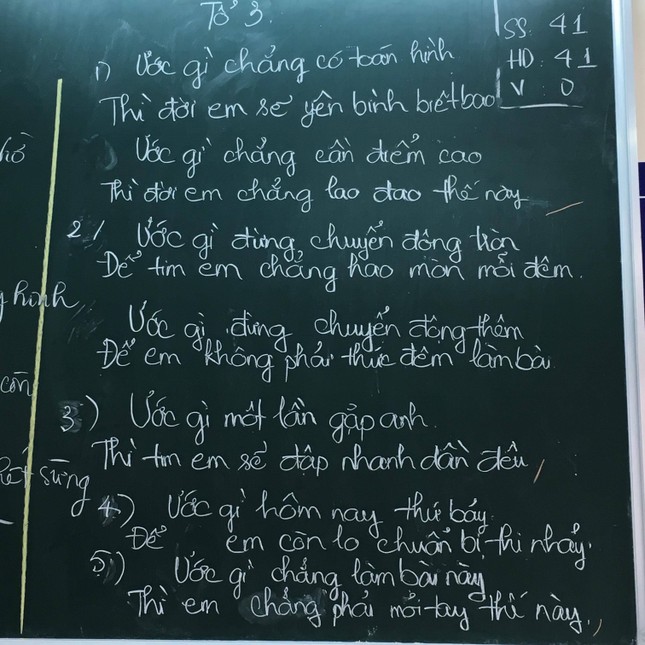 Tổ 3.
SS: 41
HD: 41
V: 0
1) Ước gì chẳng có toán hình
Thì đời em sẽ yên bình biết bao
Ước gì chẳng cần điểm cao
Thì đời em chẳng lao đao thế này
2/ Ước gì đừng chuyển động tròn
Để tim em chẳng hao mòn mỗi đêm.
Ước gì đừng chuyển động thêm
Để em không phải thức đêm làm bài
3) Ước gì một lần gặp anh.
Thì tim em sẽ đập nhanh dần đều
4) Ước gì hôm nay thứ bảy
Để em còn lo chuẩn bị thi nhảy.
5) Ước gì chẳng làm bài này
Thì em chẳng phải mỏi tay thế này.
hình
còn
sừng